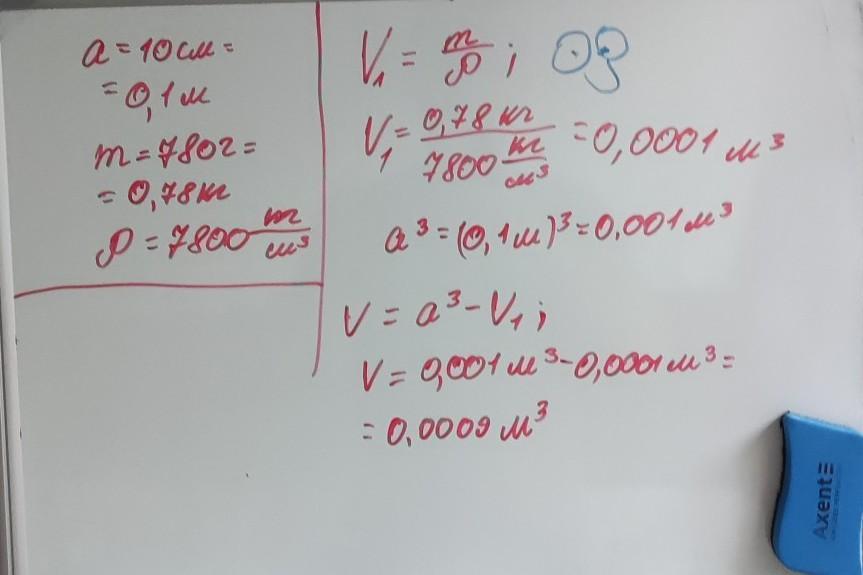 a = 10 см =
= 0,1 м
m = 780 г =
= 0,78 кг
ρ = 7800 m/м³
V₁ = m/ρ ;
V₁ = 0,78 кг / 7800 кг/м³ = 0,0001 м³
a³ = (0,1 м)³ = 0,001 м³
V = a³ - V₁ ;
V = 0,001 м³ - 0,0001 м³ =
= 0,0009 м³
Axent